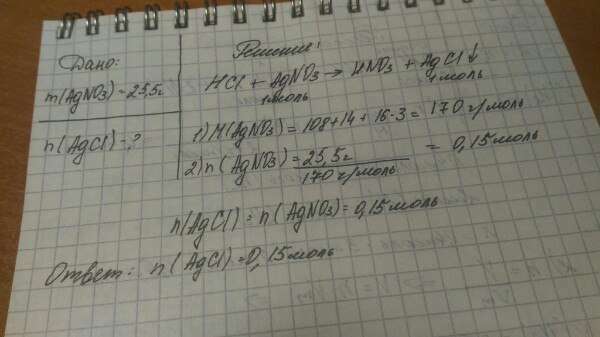 Дано:
m(AgNO3) = 25,5г
n(AgCl) = ?
Решение:
HCl + AgNO3 → HNO3 + AgCl↓
1моль 1моль
1) M(AgNO3) = 108 + 14 + 16·3 = 170 г/моль
2) n(AgNO3) = 25,5г / 170 г/моль = 0,15моль
n(AgCl) = n(AgNO3) = 0,15моль
Ответ: n(AgCl) = 0,15моль